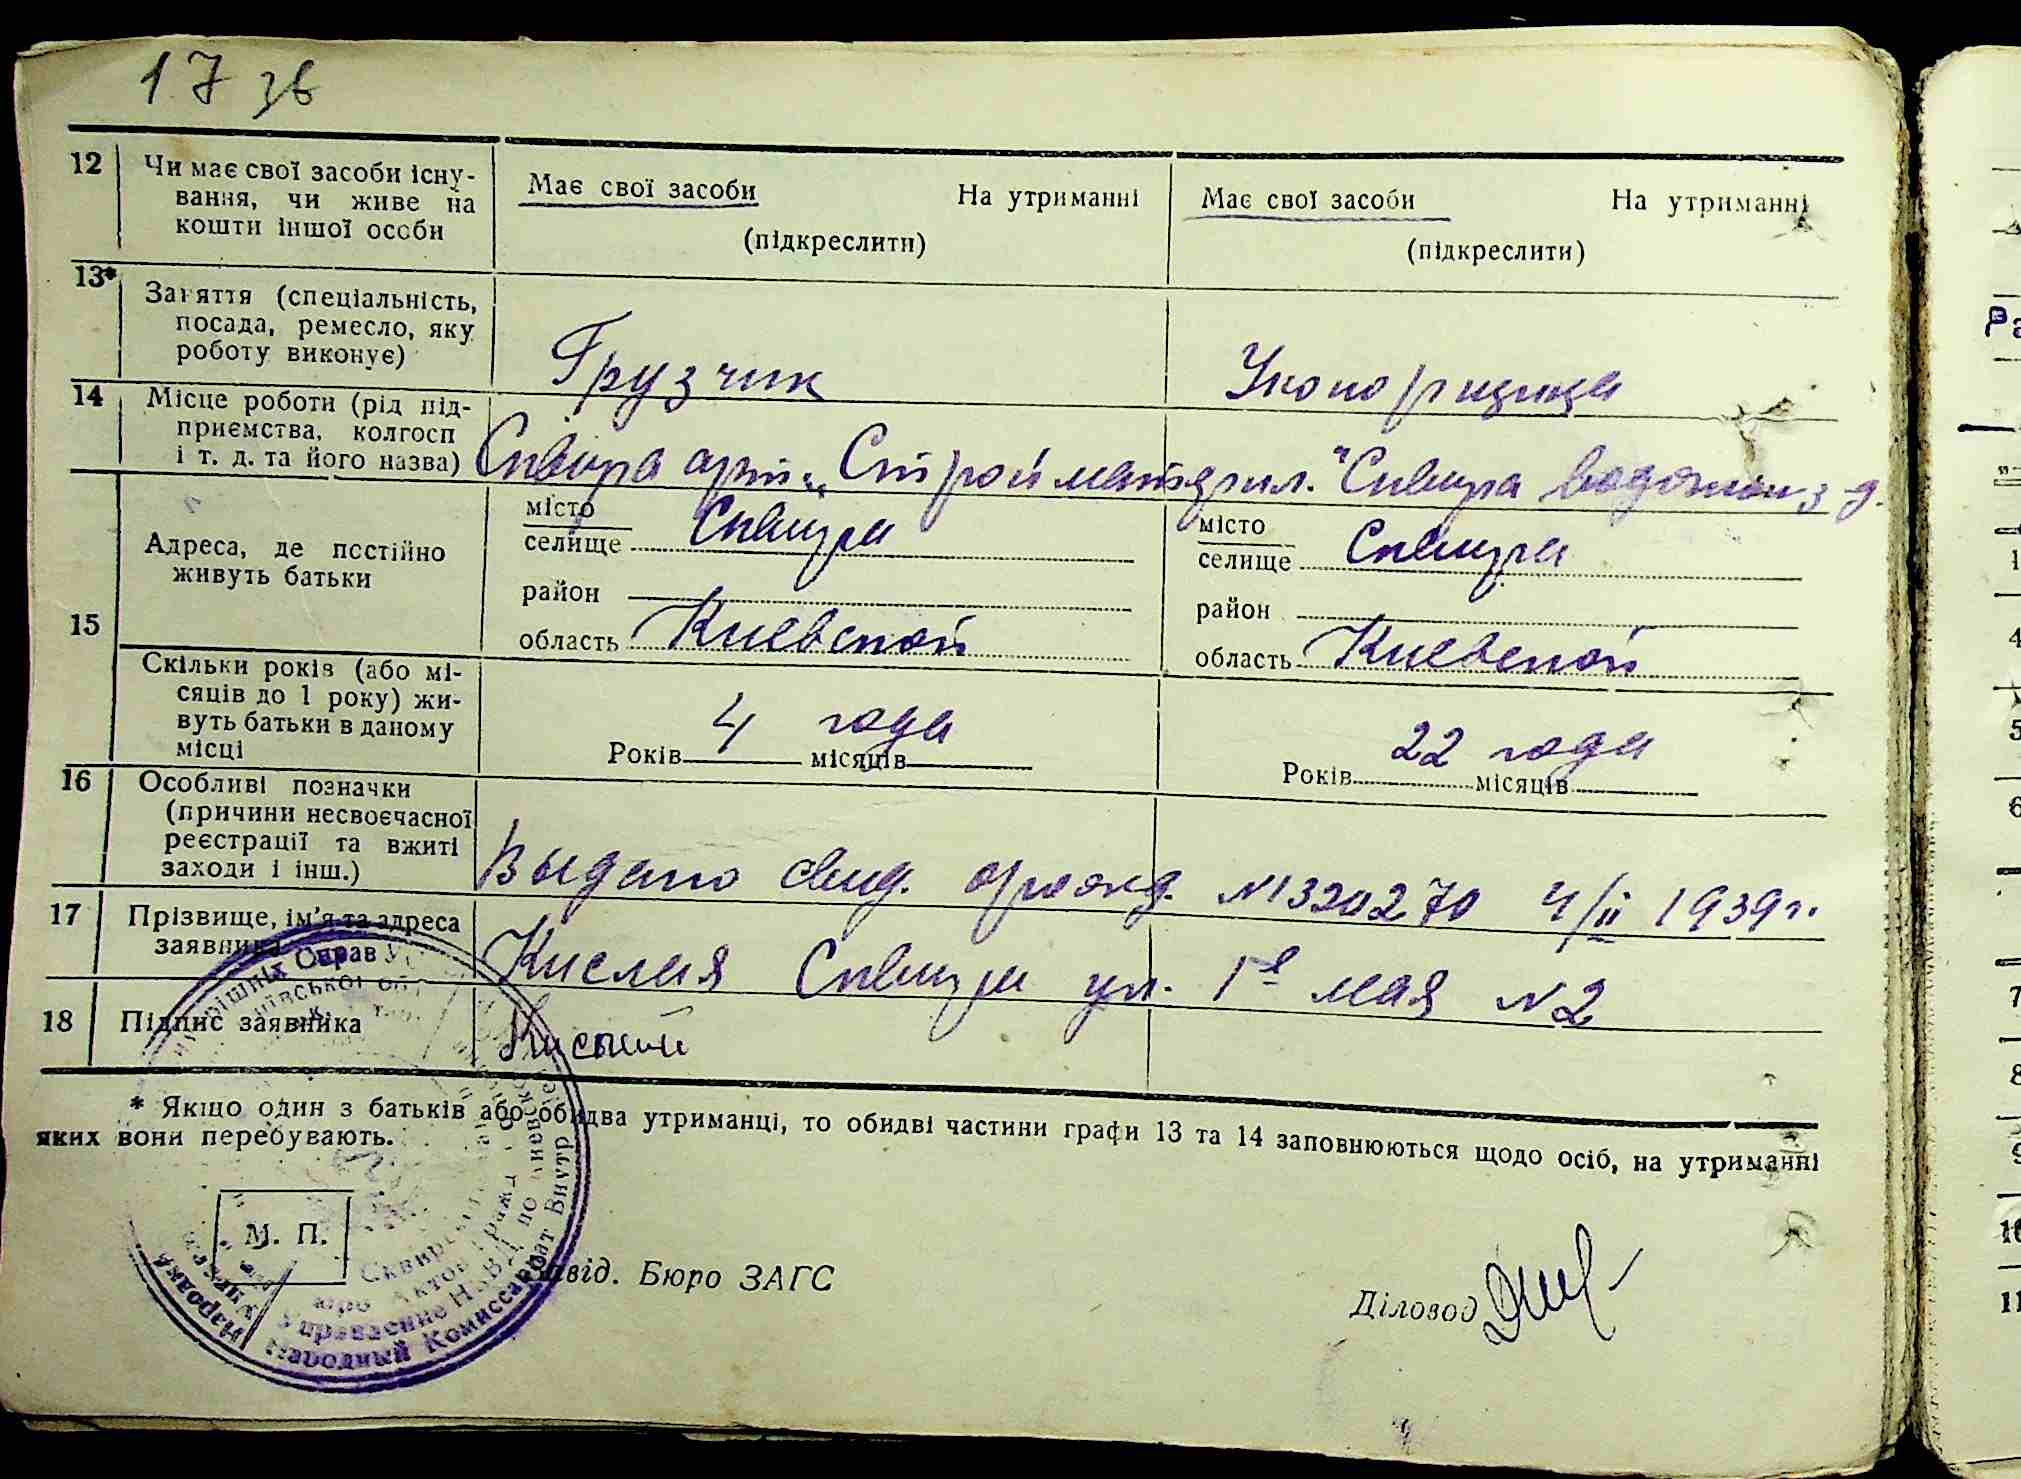 17 зв
12 Чи має свої засоби існу-
вання, чи живе на
кошти іншої особи
Має свої засоби На утриманні
(підкреслити)
Має свої засоби На утриманні
(підкреслити)
13* Заняття (спеціальність,
посада, ремесло, яку
роботу виконує)
Грузчик
Укопорщица
14 Місце роботи (рід під-
приємства, колгосп
і т. д. та його назва)
Сквира арт. „Стройматерил."
Сквира
15 Адреса, де постійно
живуть батьки
місто
селище Сквира
район
область Киевской
місто
селище Сквира
район
область Киевской
Скільки років (або мі-
сяців до 1 року) жи-
вуть батьки в даному
місці
4 года
Років місяців
22 года
Років місяців
16 Особливі позначки
(причини несвоєчасної
реєстрації та вжиті
заходи і інш.)
Выдано свид. о рожд. №1320270 4/II 1939г.
17 Прізвище, ім'я та адреса
заявника
Кислая Сквира ул. 1е мая №2
18 Підпис заявника
* Якщо один з батьків або обидва утриманці, то обидві частини графи 13 та 14 заповнюються щодо осіб, на утриманні
яких вони перебувають.
М. П.
Завід. Бюро ЗАГС
Діловод
Народный Комиссариат Внутр
Управление НКВД по Киевской